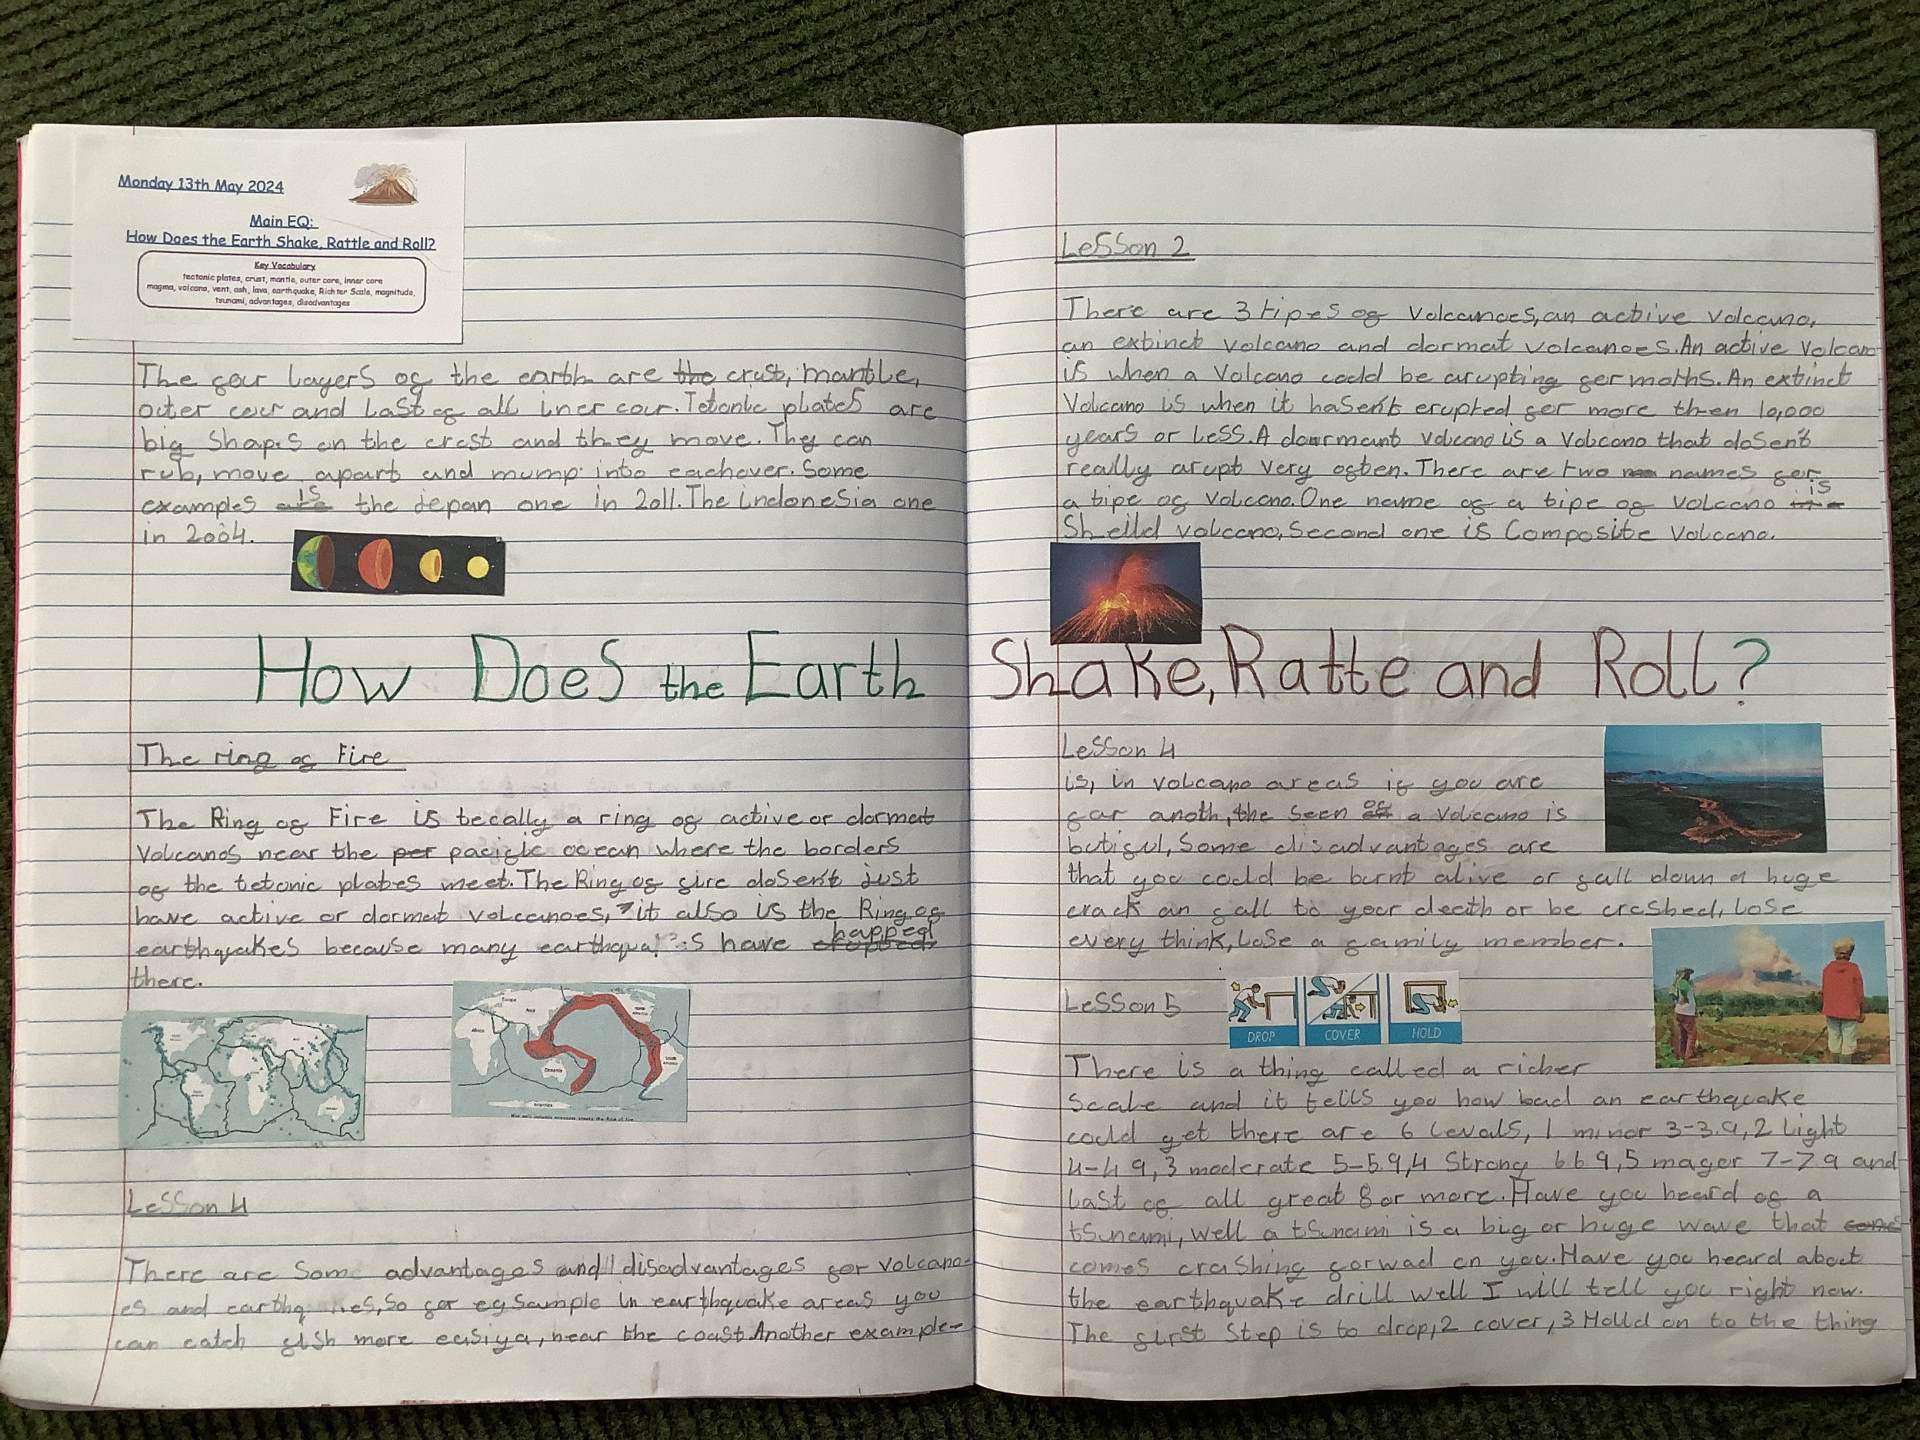 Monday 13th May 2024
Main EQ:
How Does the Earth Shake, Rattle and Roll?
Key Vocabulary
tectonic plates, crust, mantle, outer core, inner core
magma, volcano, vent, ash, lava, earthquake, Richter Scale, magnitude,
tsunami, advantages, disadvantages
The four layers of the earth are the crust, mantle,
outer cour and last of all iner cour. Tetonic plates are
big shapes on the crust and they move. They can
rub, move apart and mump into eachover. Some
examples is the jepan one in 2011. The indonesia one
in 2004.
Lesson 2
There are 3 tipes of volcanoes, an active volcano,
an extinct volcano and dormat volcanoes. An active volcano
is when a volcano could be arupting for moths. An extinct
volcano is when it hasen't erupted for more then 10,000
years or less. A dourmant volcano is a volcano that dosen't
really arupt very often. There are two names for
a tipe of volcano. One name of a tipe of volcano is
Sheild volcano, second one is Composite volcano.
How Does the Earth Shake, Ratte and Roll?
The ring of Fire
The Ring of Fire is tecally a ring of active or dormat
volcanos near the per pacific ocean where the borders
of the tetonic plates meet. The Ring of fire dosen't just
have active or dormat volcanoes, it also is the Ring of
earthquakes because many have happed
there.
Europe
Asia
Africa
Oceania
Lesson 4
There are some advantages and disadvantages for volcano-
es and so for egsample in earthquake areas you
can catch fish more easiya, near the coast. Another example-
Lesson 4
is, in volcano areas if you are
far anoth, the seen of a volcano is
butiful, some disadvantages are
that you could be burnt alive or fall down a huge
crack an fall to your death or be crushed, lose
every think, lose a family member.
Lesson 5
DROP
COVER
HOLD
There is a thing called a richer
scale and it tells you how bad an earthquake
could get there are 6 levals, 1 minor 3-3.9, 2 light
4-4 9, 3 moderate 5-5.9, 4 Strong 6 6 9, 5 mager 7-7 9 and
last of all great 8 or more. Have you heard of a
tsunami, well a tsunami is a big or huge wave that
comes crashing forwad on you. Have you heard about
the earthquake drill well I will tell you right now.
The first step is to drop, 2 cover, 3 Holld on to the thing